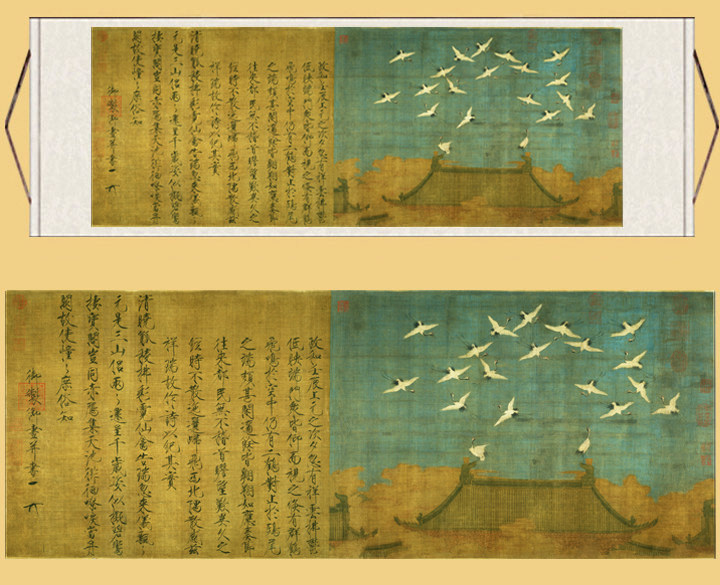 政和壬辰上元之次夕忽有祥雲拂鬱
低映端門眾皆仰而視之倏有群鶴
飛鳴於空中仍有二鶴對止於鴟尾
之端頗甚閒適餘皆翱翔如應奏節
往來都民無不稽首瞻望歎異久之
經時不散迤邐歸飛西北隅散感茲
祥瑞故作詩以紀其實
清曉觚稜拂彩霓仙禽告瑞忽來儀飄飄
元是三山侶兩兩還呈千歲姿似擬碧鸞
棲寶閣豈同赤雁集天池徘徊嘹唳當丹
闕故使憧憧庶俗知
御製御畫并書
政和壬辰上元之次夕忽有祥雲拂鬱
低映端門眾皆仰而視之倏有群鶴
飛鳴於空中仍有二鶴對止於鴟尾
之端頗甚閒適餘皆翱翔如應奏節
往來都民無不稽首瞻望歎異久之
經時不散迤邐歸飛西北隅散感茲
祥瑞故作詩以紀其實
清曉觚稜拂彩霓仙禽告瑞忽來儀飄飄
元是三山侶兩兩還呈千歲姿似擬碧鸞
棲寶閣豈同赤雁集天池徘徊嘹唳當丹
闕故使憧憧庶俗知
御製御畫并書